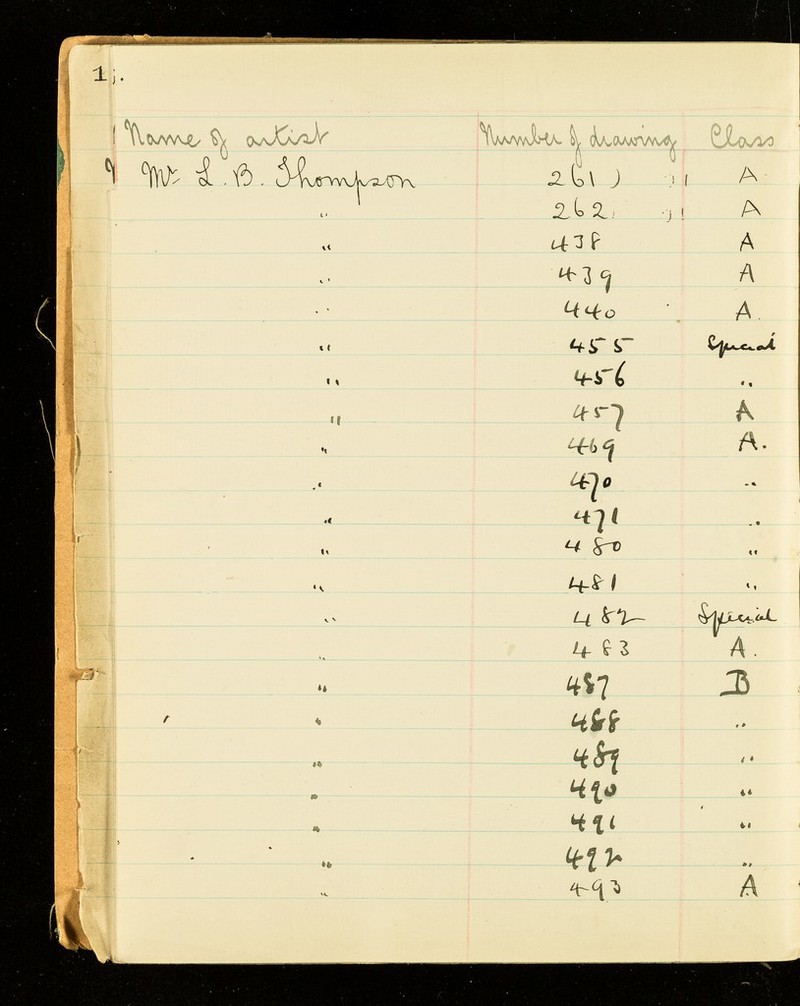 1
Name of artist Number of drawing Class
Mr L. B. Thompson 261 A
" 262 A
" 438 A
" 439 A
" 440 A.
" 455 Special
" 456 "
" 457 A
" 469 A.
" 470 "
" 471 "
" 480 "
" 481 "
" 482 Special
" 483 A.
" 487 B
" 488 "
" 489 "
" 490 "
" 491 "
" 492 "
" 493 A